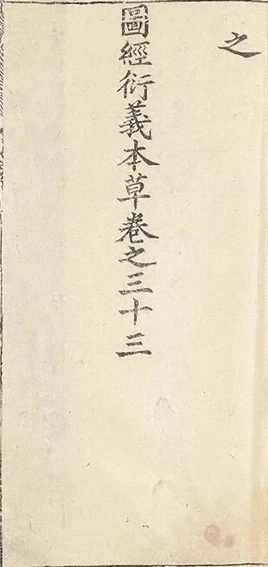 之
圖經衍義本草卷之三十三